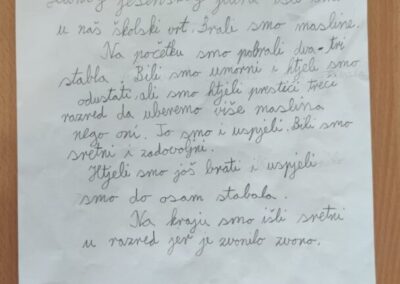 u naš školski vrt. Brali smo masline.
Na početku smo pobrali dva-tri
stabla. Bili smo umorni i htjeli smo
odustati, ali smo htjeli prestići treći
razred da uberemo više maslina
nego oni. To smo i uspjeli. Bili smo
sretni i zadovoljni.
Htjeli smo još brati i uspjeli
smo do osam stabala.
Na kraju smo išli sretni
u razred jer je zvonilo zvono.